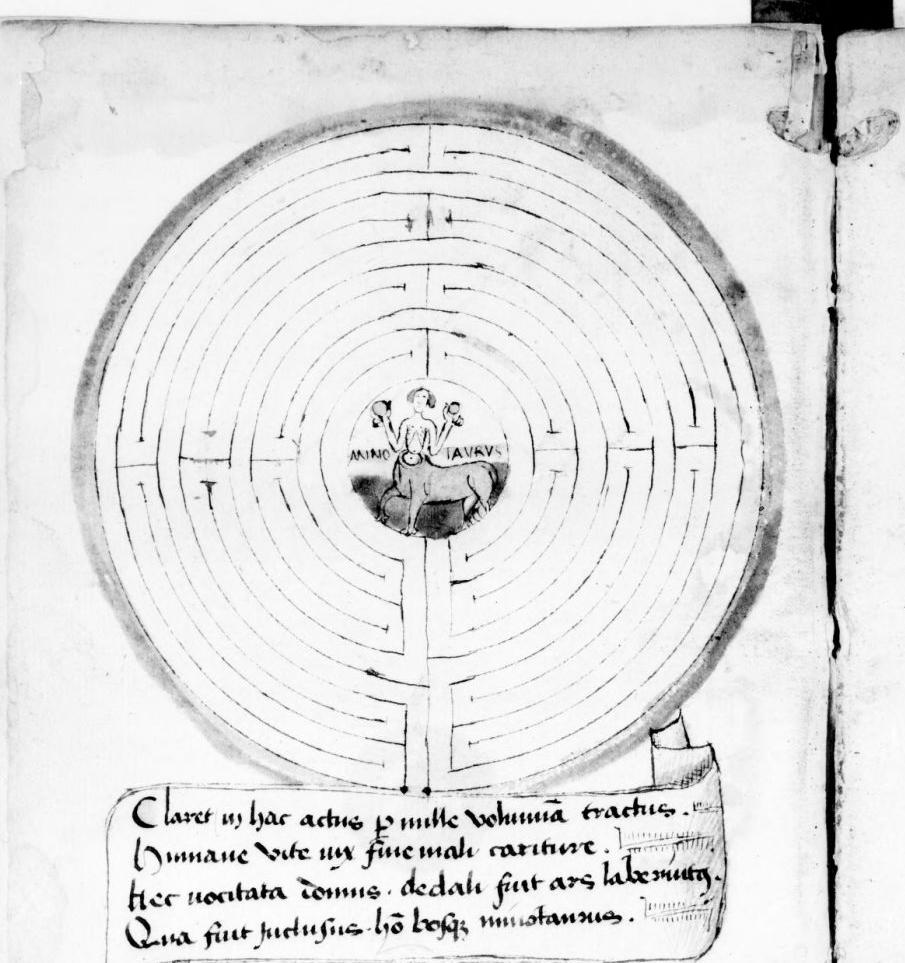 MINO TAVRVS
Claret in hac actus p mille voluminā tractus.
Humane vite vix sine mali cariture.
Hec uocitata domus. dedali fuit ars laberinttꝫ.
Qua fuit inclusus. hō bosqꝫ minotaurus.